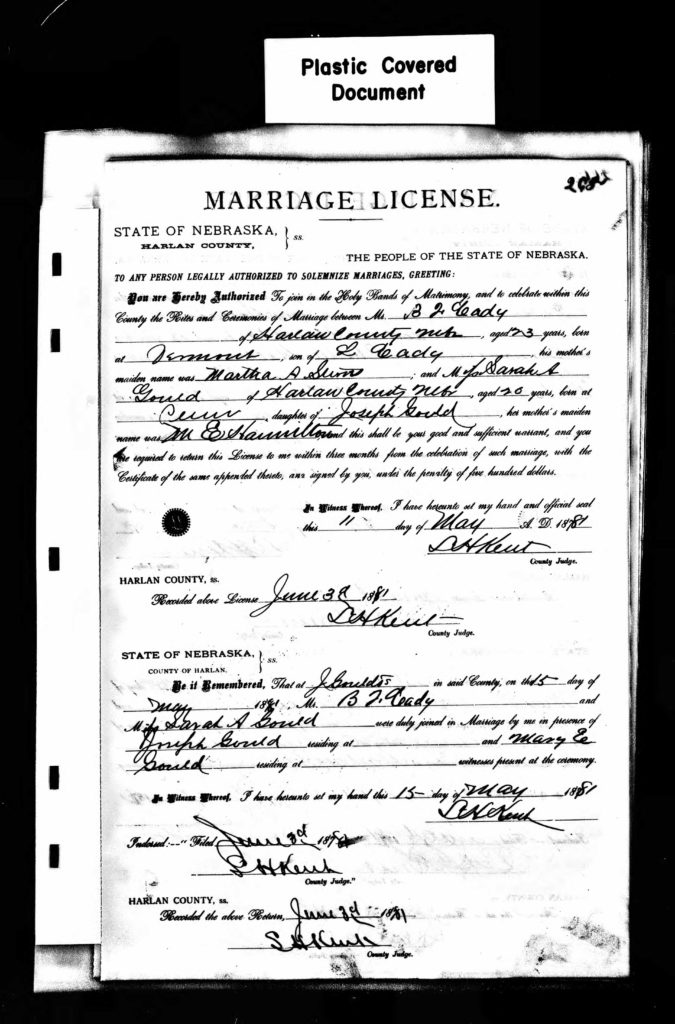 Plastic Covered
Document
MARRIAGE LICENSE.
STATE OF NEBRASKA,
HARLAN COUNTY,
ss.
THE PEOPLE OF THE STATE OF NEBRASKA.
TO ANY PERSON LEGALLY AUTHORIZED TO SOLEMNIZE MARRIAGES, GREETING:
You are Hereby Authorized To join in the Holy Bands of Matrimony, and to celebrate within this
County the Rites and Ceremonies of Marriage between Mr. B F Cady
of Harlan County Nebr, aged 23 years, born
at Vermont, son of L Cady his mother's
maiden name was Martha A and Miss Sarah A
Gould of Harlan County Nebr, aged 20 years, born at
Penn, daughter of Joseph Gould, her mother's maiden
name was M E Hamilton and this shall be your good and sufficient warrant, and you
are required to return this License to me within three months from the celebration of such marriage, with the
Certificate of the same appended thereto, and signed by you, under the penalty of five hundred dollars.
In Witness Whereof, I have hereunto set my hand and official seal
this 11 day of May A. D. 1881
S H Kent
County Judge.
HARLAN COUNTY, ss.
Recorded above License June 3d 1881
S H Kent
County Judge.
STATE OF NEBRASKA,
COUNTY OF HARLAN.
ss.
Be it Remembered, That at J Gould's in said County, on the 15 day of
May 1881, Mr. B F Cady and
Miss Sarah A Gould were duly joined in Marriage by me in presence of
Joseph Gould residing at and Mary E
Gould residing at witnesses present at the ceremony.
In Witness Whereof, I have hereunto set my hand this 15 day of May 1881
S H Kent
Indorsed:—" Filed June 3d 1881
S H Kent
County Judge."
HARLAN COUNTY, ss.
Recorded the above Return, June 3d 1881
S H Kent
County Judge.